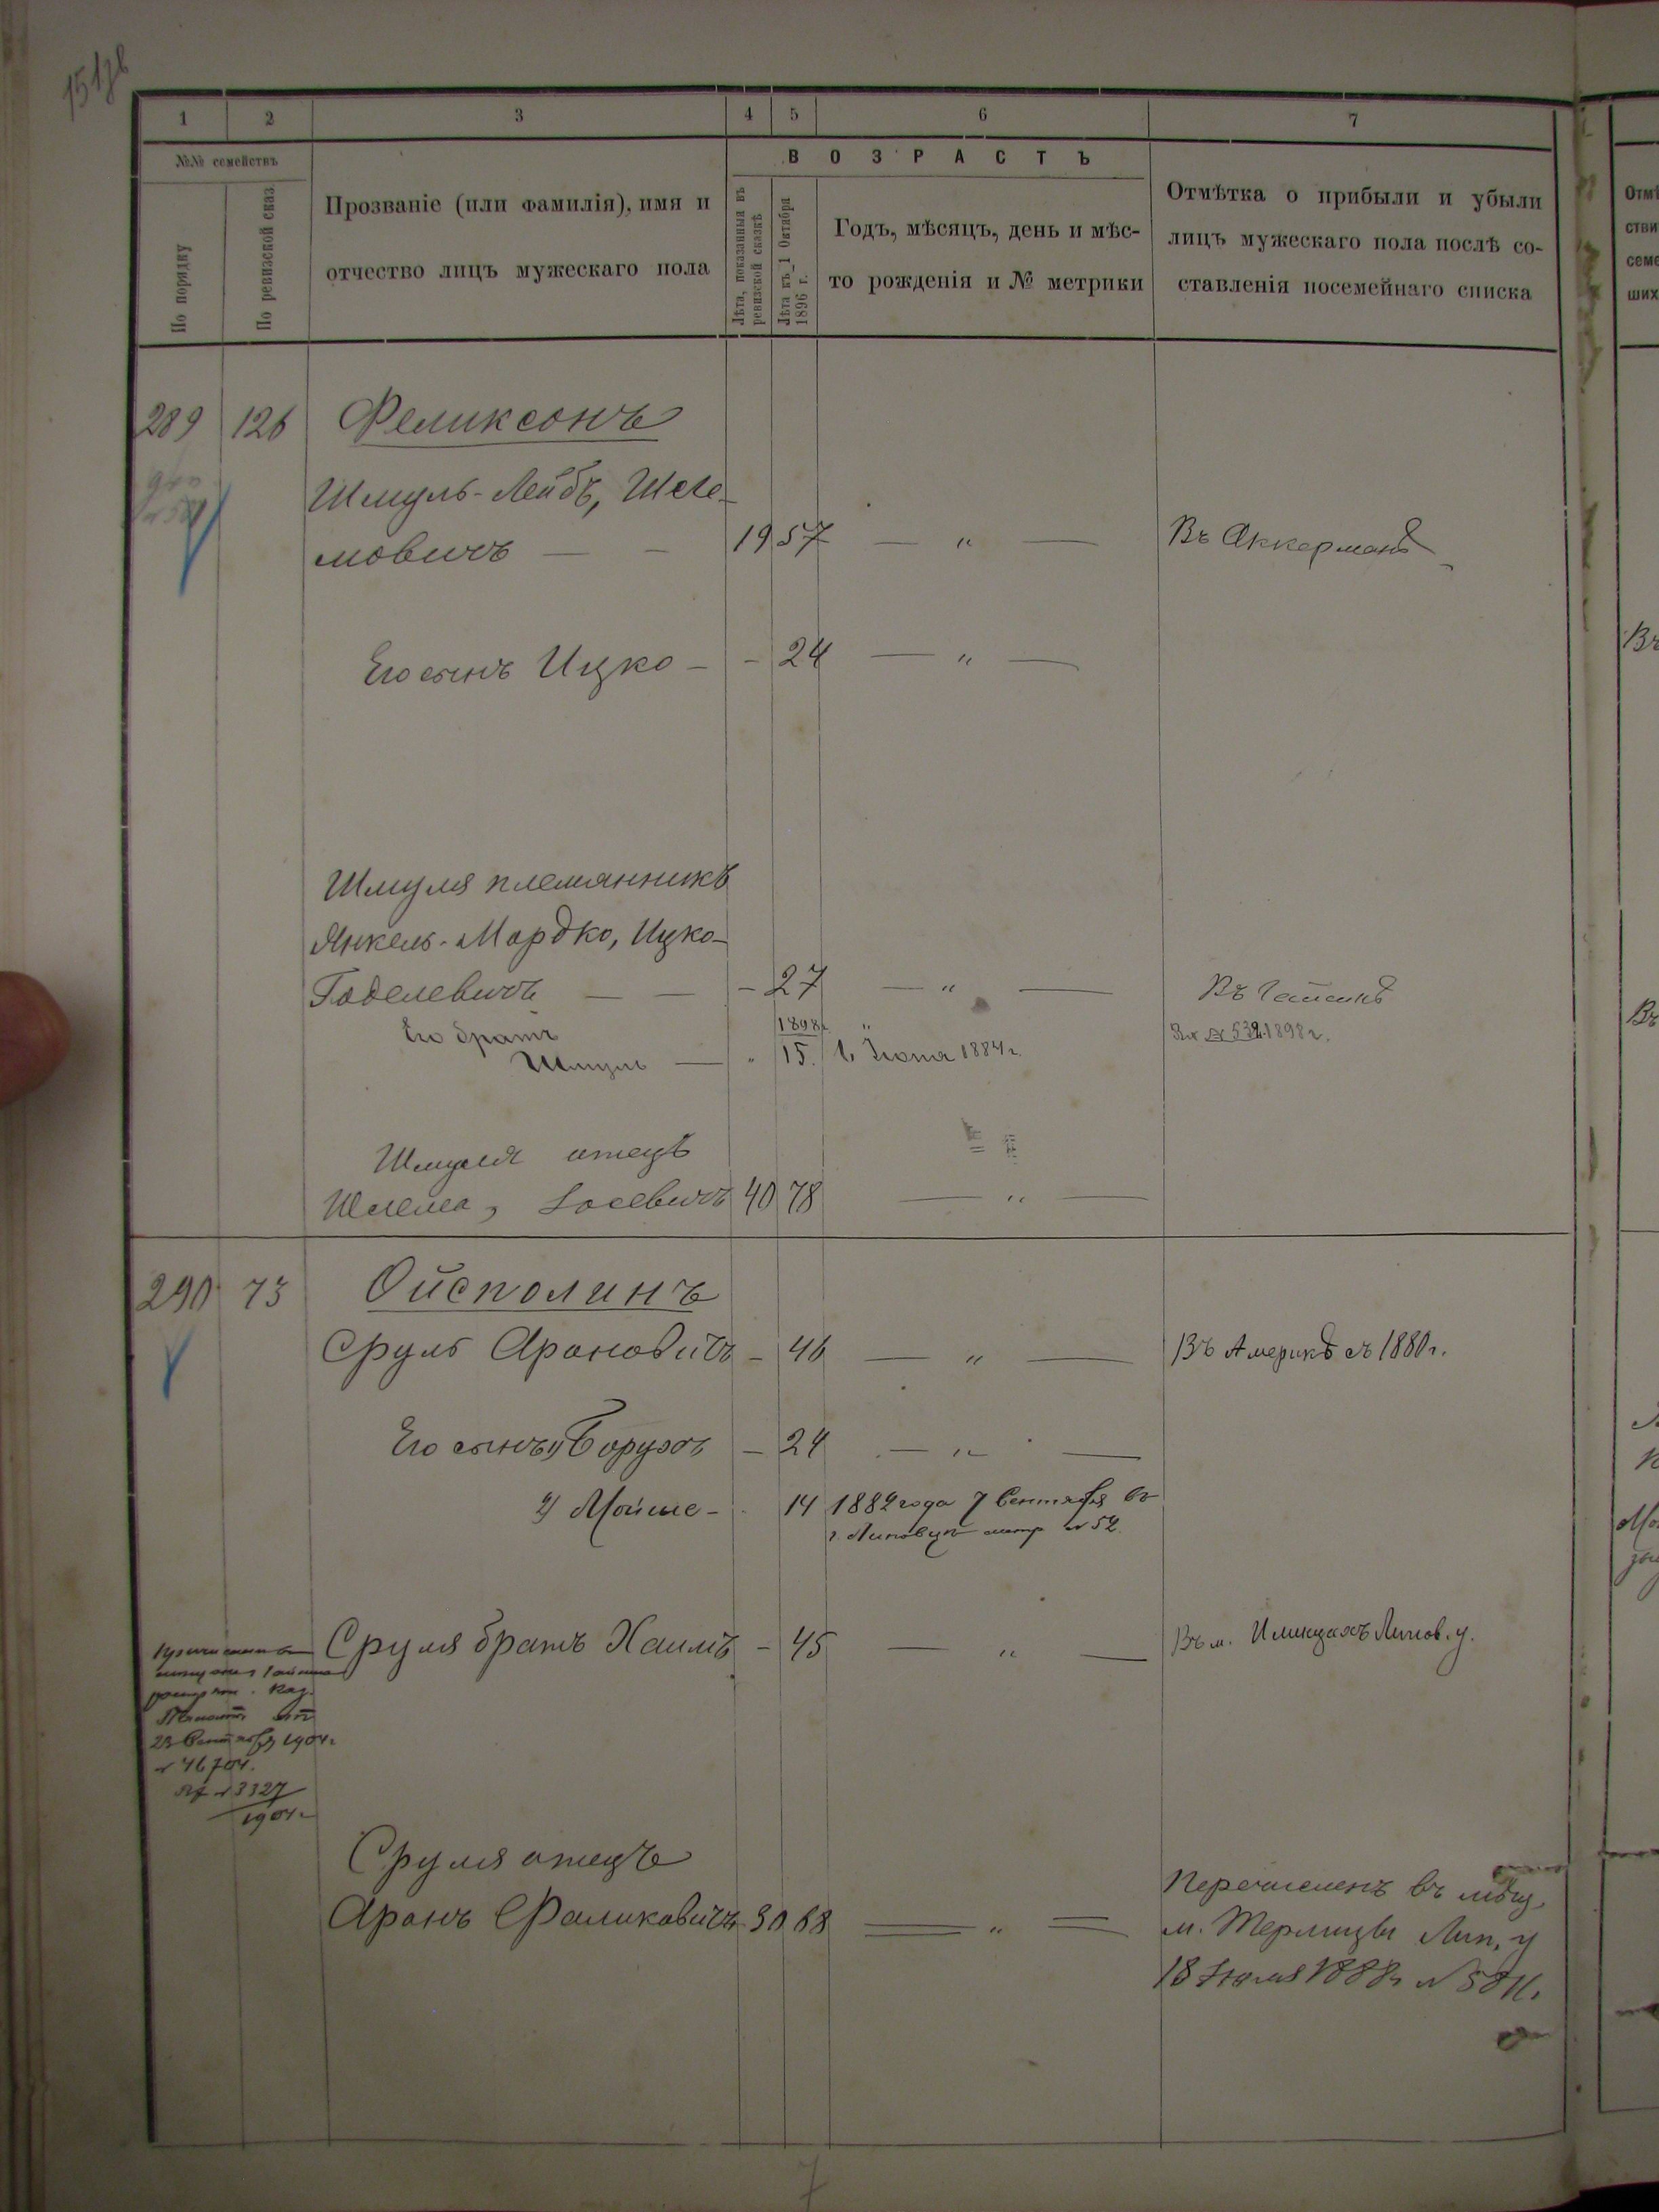 1 2 3 4 5 6 7
№№ семействъ
По порядку
По ревизской сказ
Прозваніе (или фамилія), имя и
отчество лицъ мужескаго пола
ВОЗРАСТЪ
Лѣта, показанныя въ
ревизской сказкѣ
Лѣта къ 1 Октября
1896 г.
Годъ, мѣсяцъ, день и мѣс-
то рожденія и № метрики
Отмѣтка о прибыли и убыли
лицъ мужескаго пола послѣ со-
ставленія посемейнаго списка
289 126 Феликсонъ
Шмуль-Лейбъ, Шле-
мовичъ — — 19 57 — " — Въ Аккерманѣ
Его сынъ Ицко - - 24 — " —
Шмуля племянникъ
Янкель-Мордко, Ицко-
Годелевичъ — — - 27 — " — Въ Гайсинѣ
Его братъ 1898 г. "
Шмуль — " 15. 1884 г. 1898 г.
Шмуля отецъ
Шлема, Іосевичъ 40 78 — " —
290 73 Ойсполинъ
Сруль Ароновичъ - 46 — " — Въ Америкѣ съ 1880 г.
Его сынъ 1) Борухъ - 24 — " —
2) Мойше - 14 1882 года 7 Сентября въ
г. Липовцѣ метр № 52.
Сруля братъ Хаимъ - 45 — " — Въ м. Илинцахъ Липов. у.
23 Сентября 1904 г.
№ 46704.
№ 3327
1904 г.
Сруля отецъ
Аронъ Фаликовичъ 30 68 — " — Перечисленъ въ мѣщ.
м. Терлицы Лип. у
18 Іюля 1888 г. №
7